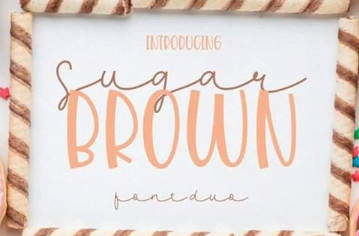 INTRODUCING
sugar
BROWN
fontduo